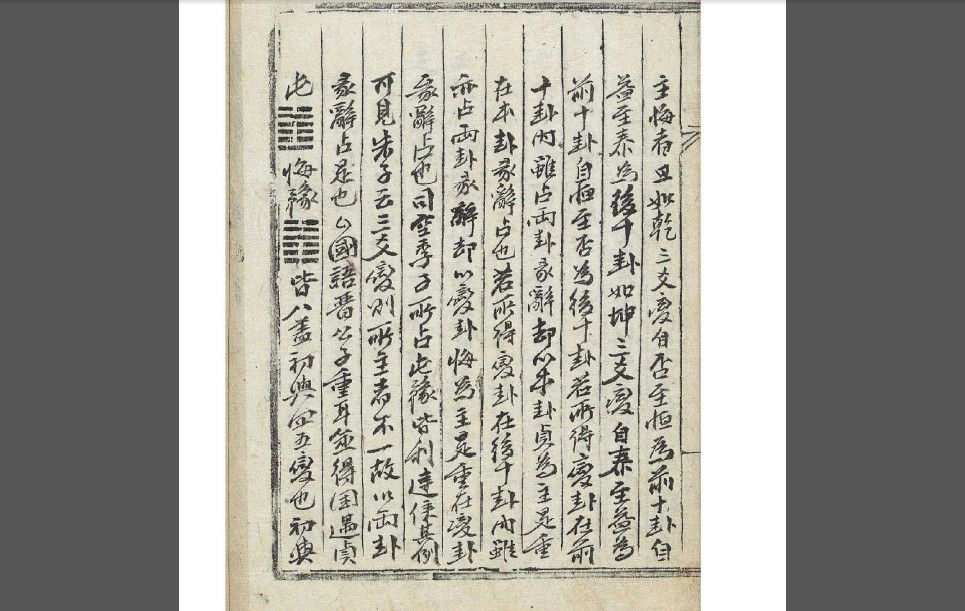 主悔者且如乾三爻變自否至恒為前十卦自
益至泰為後十卦如坤三爻變自泰至益為
前十卦自恒至否為後十卦若所得變卦在前
十卦內雖占兩卦彖辭却以本卦貞為主是重
在本卦彖辭占也若所得變卦在後十卦內雖
亦占兩卦彖辭却以變卦悔為主是重在變卦
彖辭占也司空季子所占屯豫皆利建侯其例
可見朱子云三爻變則所主者不一故以兩卦
彖辭占是也國語晋公子重耳筮得国遇貞
屯䷂悔豫䷏皆八盖初與四五變也初與